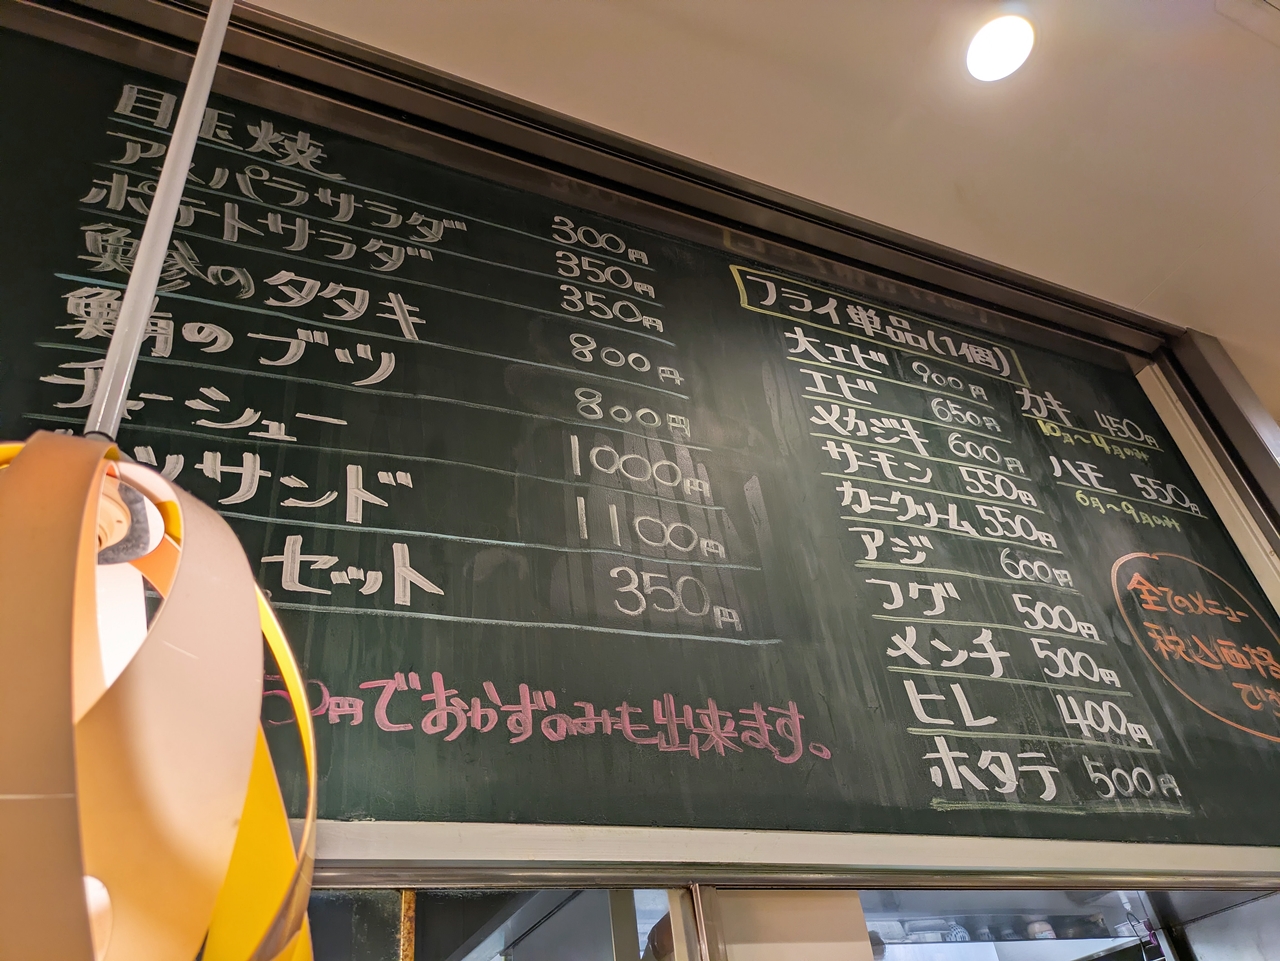 目玉焼 300円
アスパラサラダ 350円
ポテトサラダ 350円
鯵のタタキ 800円
鮪のブツ 800円
チャーシュー 1000円
ツサンド 1100円
セット 350円
50円でおかずのみも出来ます。
フライ単品(1個)
大エビ 900円
エビ 650円
メカジキ 600円
サーモン 550円
カニクリーム 550円
アジ 600円
フグ 500円
メンチ 500円
ヒレ 400円
ホタテ 500円
カキ 450円
10月〜4月のみ
ハモ 550円
6月〜9月のみ
全てのメニュー
税込価格
です